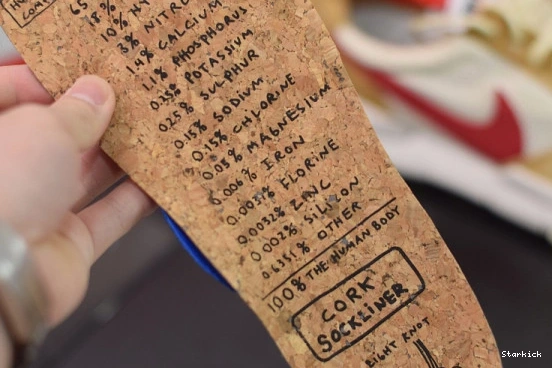 COM
65
18%
10% HY
3% NITRO
1.4% CALCIUM
1.1% PHOSPHORUS
0.25% POTASSIUM
0.25% SULPHUR
0.15% SODIUM
0.15% CHLORINE
0.05% MAGNESIUM
0.006% IRON
0.0037% FLORINE
0.0032% ZINC
0.002% SILICON
0.6351% OTHER
100% THE HUMAN BODY
CORK
SOCKLINER
EIGHT KNOT
Starkick